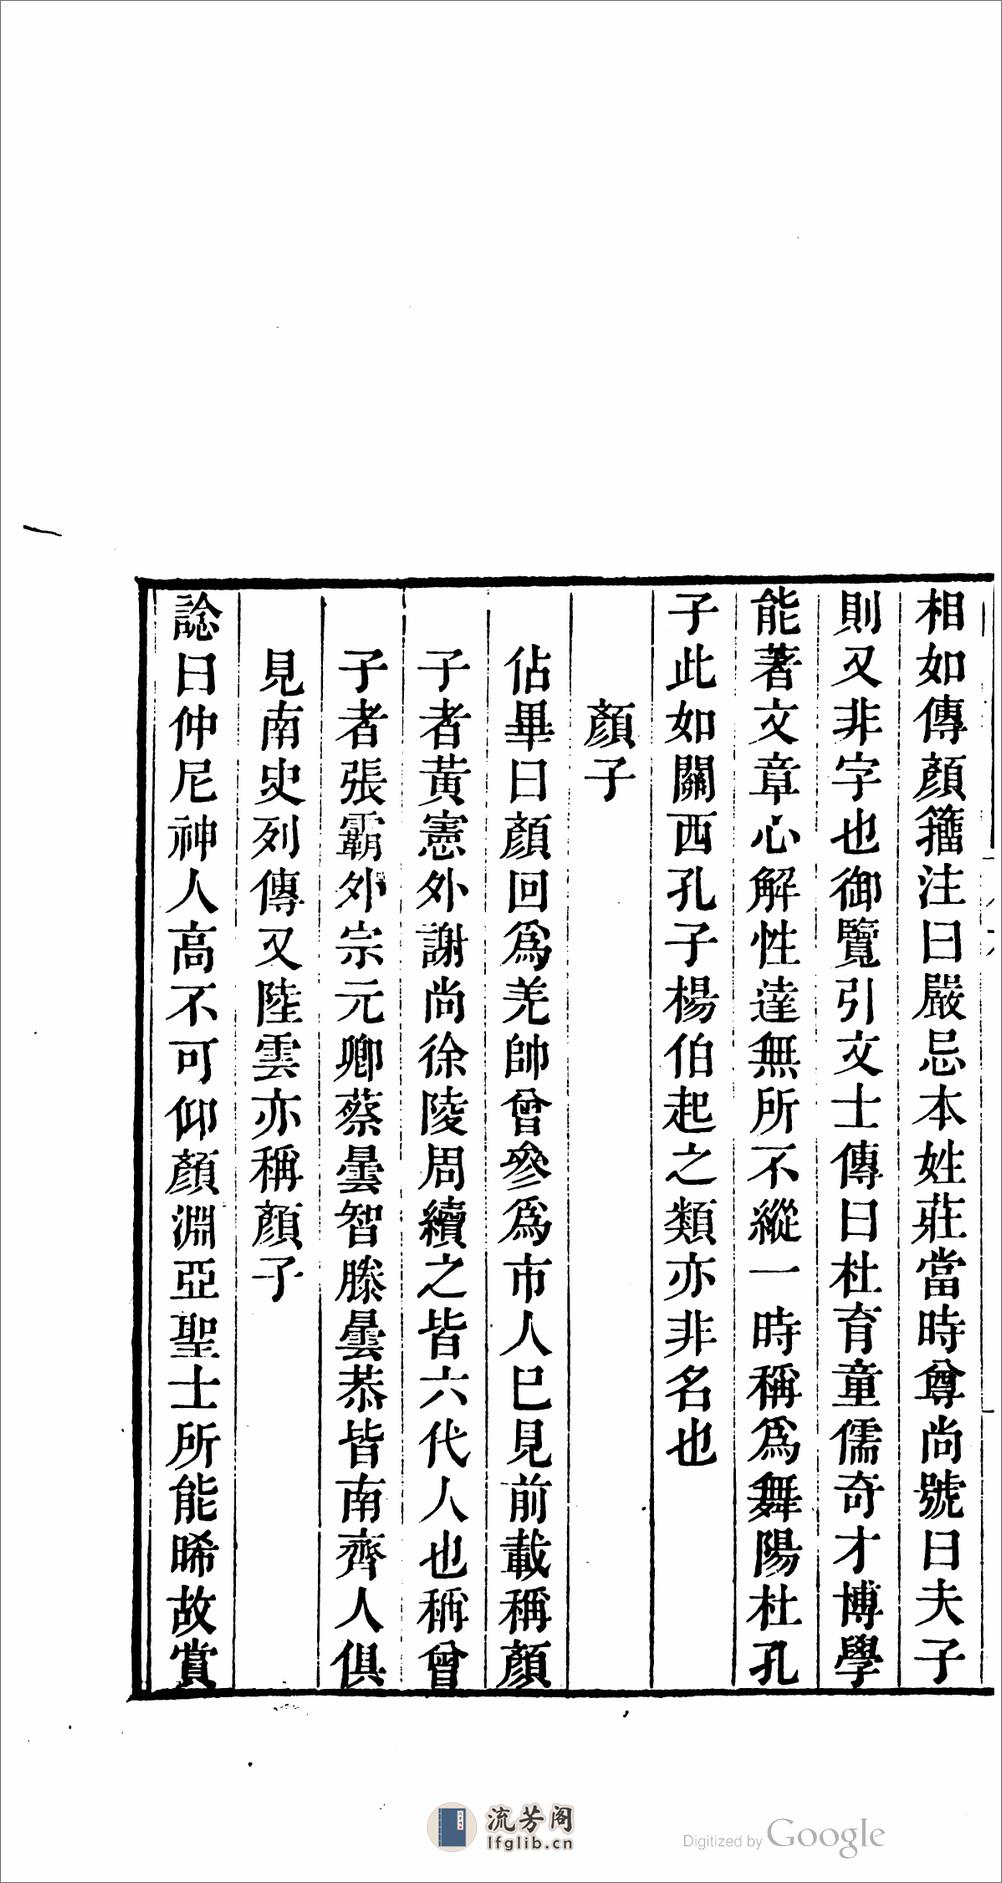 相如傳顏籀注曰嚴忌本姓莊當時尊尚號曰夫子
則又非字也御覽引文士傳曰杜育童儒奇才博學
能著文章心解性達無所不縱一時稱爲舞陽杜孔
子此如關西孔子楊伯起之類亦非名也
顏子
佔畢曰顏回爲羌帥曾參爲市人已見前載稱顏
子者黃憲外謝尚徐陵周續之皆六代人也稱曾
子者張霸外宗元卿蔡曇智滕曇恭皆南齊人俱
見南史列傳又陸雲亦稱顏子
諗曰仲尼神人高不可仰顏淵亞聖士所能晞故賞
流芳阁
lfglib.cn
Digitized by Google